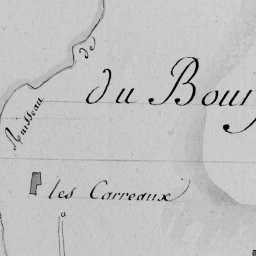 de
du Bour
Ruisseau
les Carreaux